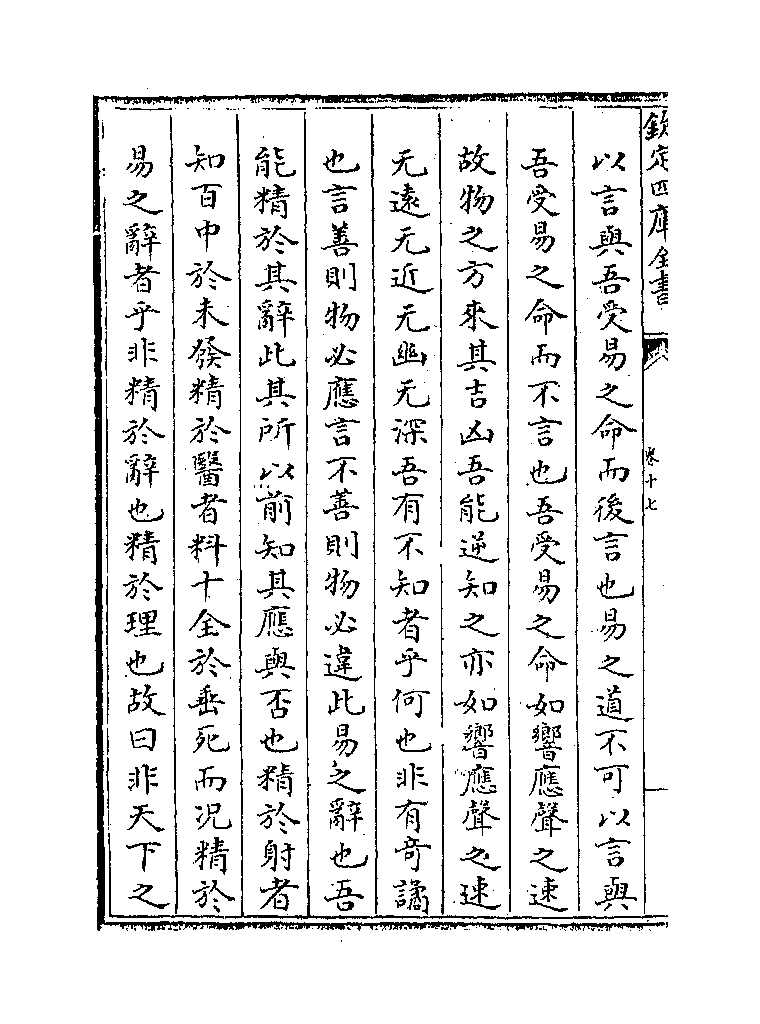 欽定四庫全書
卷十七
以言與吾受易之命而後言也易之道不可以言與
吾受易之命而不言也吾受易之命如響應聲之速
故物之方來其吉凶吾能逆知之亦如響應聲之速
无遠无近无幽无深吾有不知者乎何也非有奇譎
也言善則物必應言不善則物必違此易之辭也吾
能精於其辭此其所以前知其應與否也精於射者
知百中於未發精於醫者料十全於垂死而况精於
易之辭者乎非精於辭也精於理也故曰非天下之